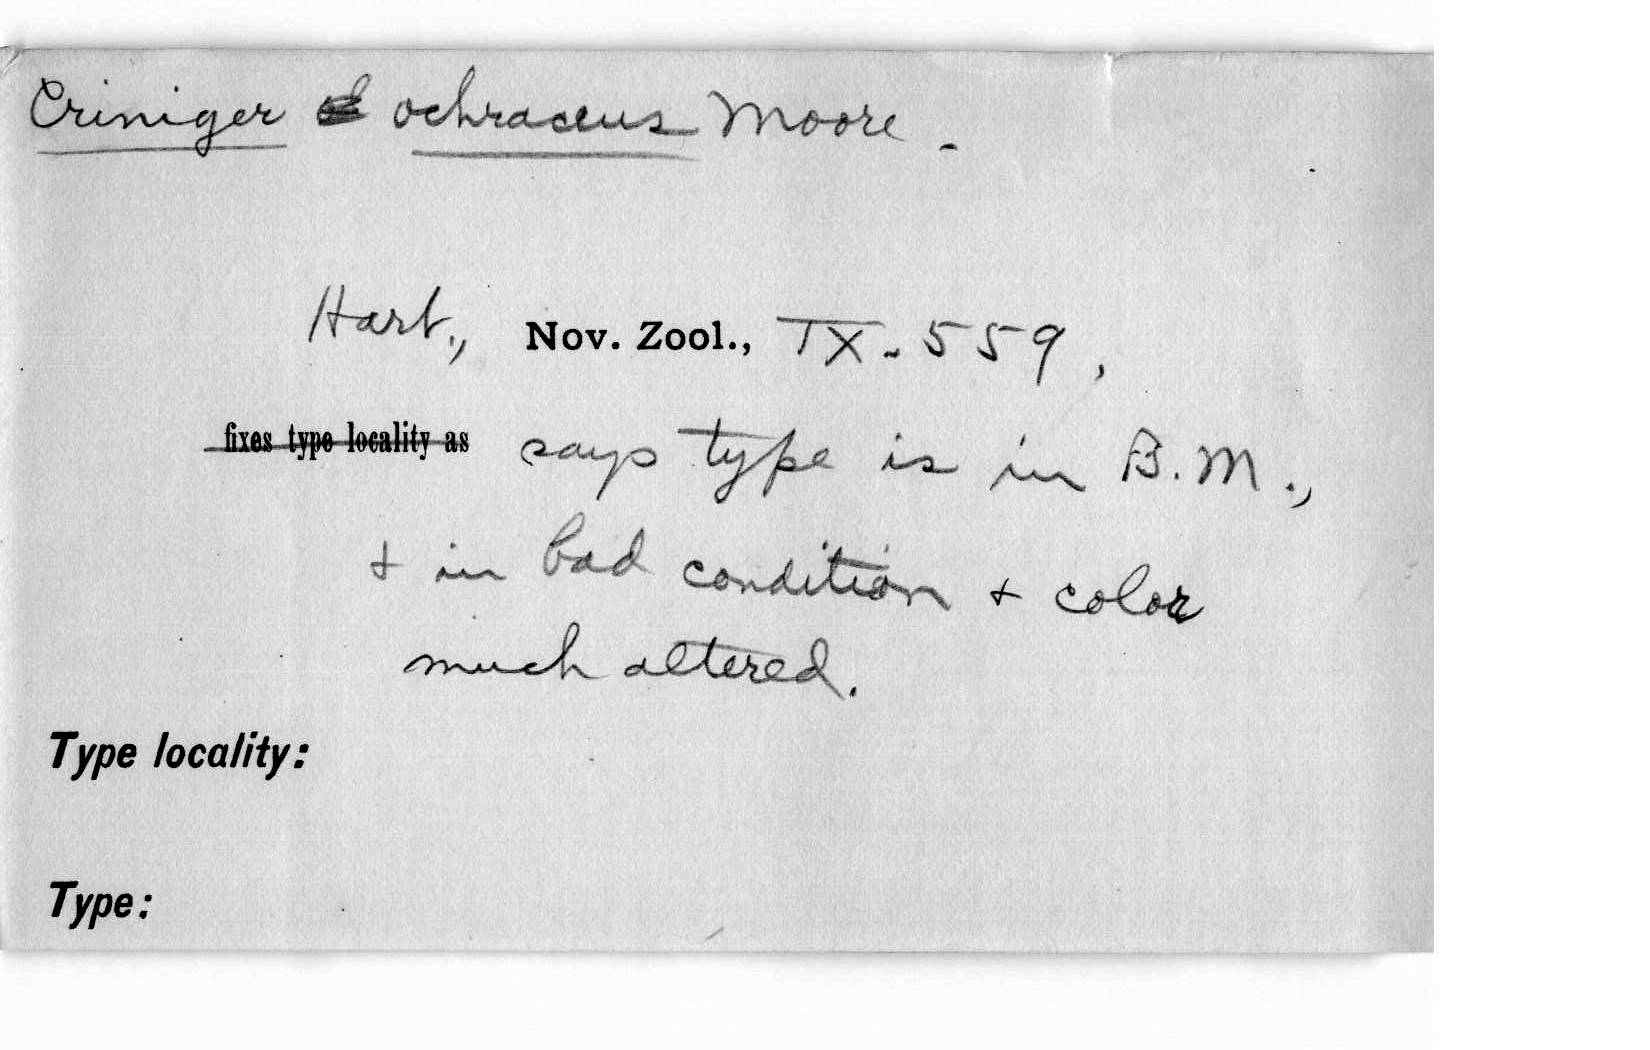 Criniger ochraceus Moore.
Hart., Nov. Zool., IX. 559,
fixes type locality as says type is in B.M.,
+ in bad condition + color
much altered.
Type locality:
Type: